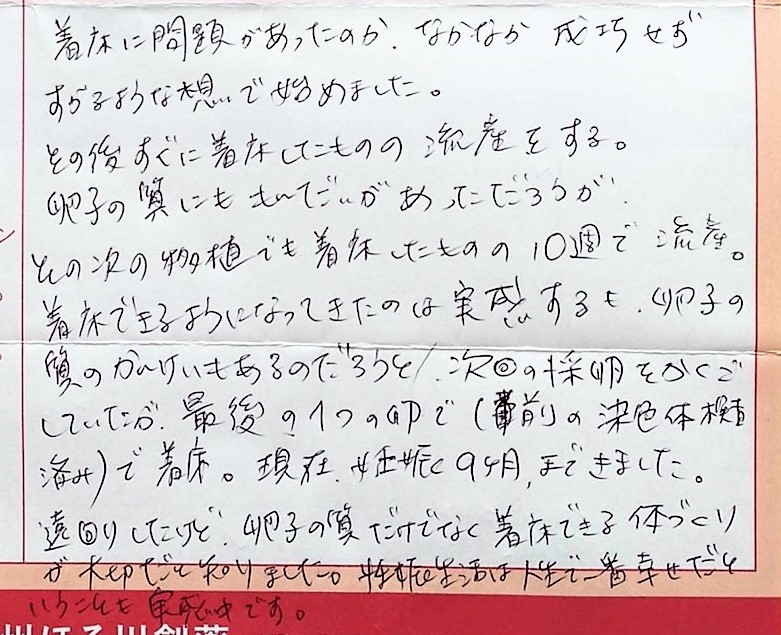 着床に問題があったのか、なかなか成功せず
すがるような想いで始めました。
その後すぐに着床したものの流産をする。
卵子の質にももんだいがあっただろうが、
その次の移植でも着床したものの10週で流産。
着床できるようになってきたのは実感するも、卵子の
質のかんけいもあるのだろうと、次回の採卵をかくご
していたが、最後の1つの卵で(事前の染色体検査
済み)で着床。現在、妊娠9ヶ月、まできました。
遠回りしたけど、卵子の質だけでなく着床できる体づくり
が大切だと知りました。妊娠生活は人生で一番幸せだと
いうことも実感中です。